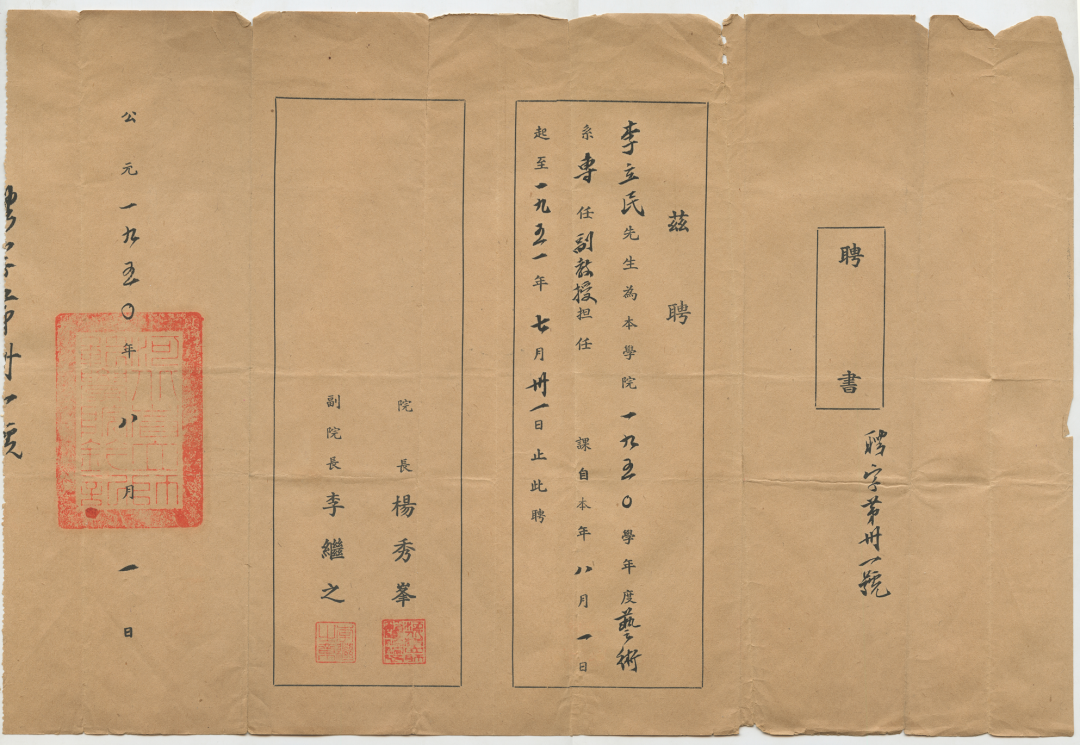 聘書
聘字第卅一號
茲聘
李立民先生為本學院一九五〇學年度藝術
系專任副教授担任 課自本年八月一日
起至一九五一年七月卅一日止此聘
院長楊秀峯
副院長李繼之
公元一九五〇年八月一日